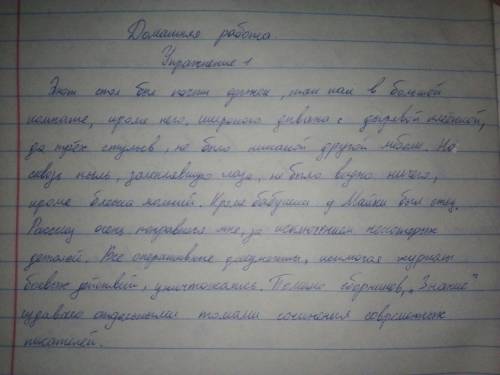 Домашняя работа.
Упражнение 1
Этот стол был почти одинок, так как в большой
комнате, кроме него, широкого дивана с дырявой клеёнкой,
да трёх стульев, не было никакой другой мебели. На
сквозь пыль, залеплявшую глаза, не было видно ничего,
кроме блеска молний. Кроме бабушки у Майки был отец.
Рассказ очень понравился мне, за исключением некоторых
деталей. Все оперативные документы, исключая журнал
боевых действий, уничтожались. Помимо сборников, "Знание"
издавало отдельными томами сочинения современных
писателей.